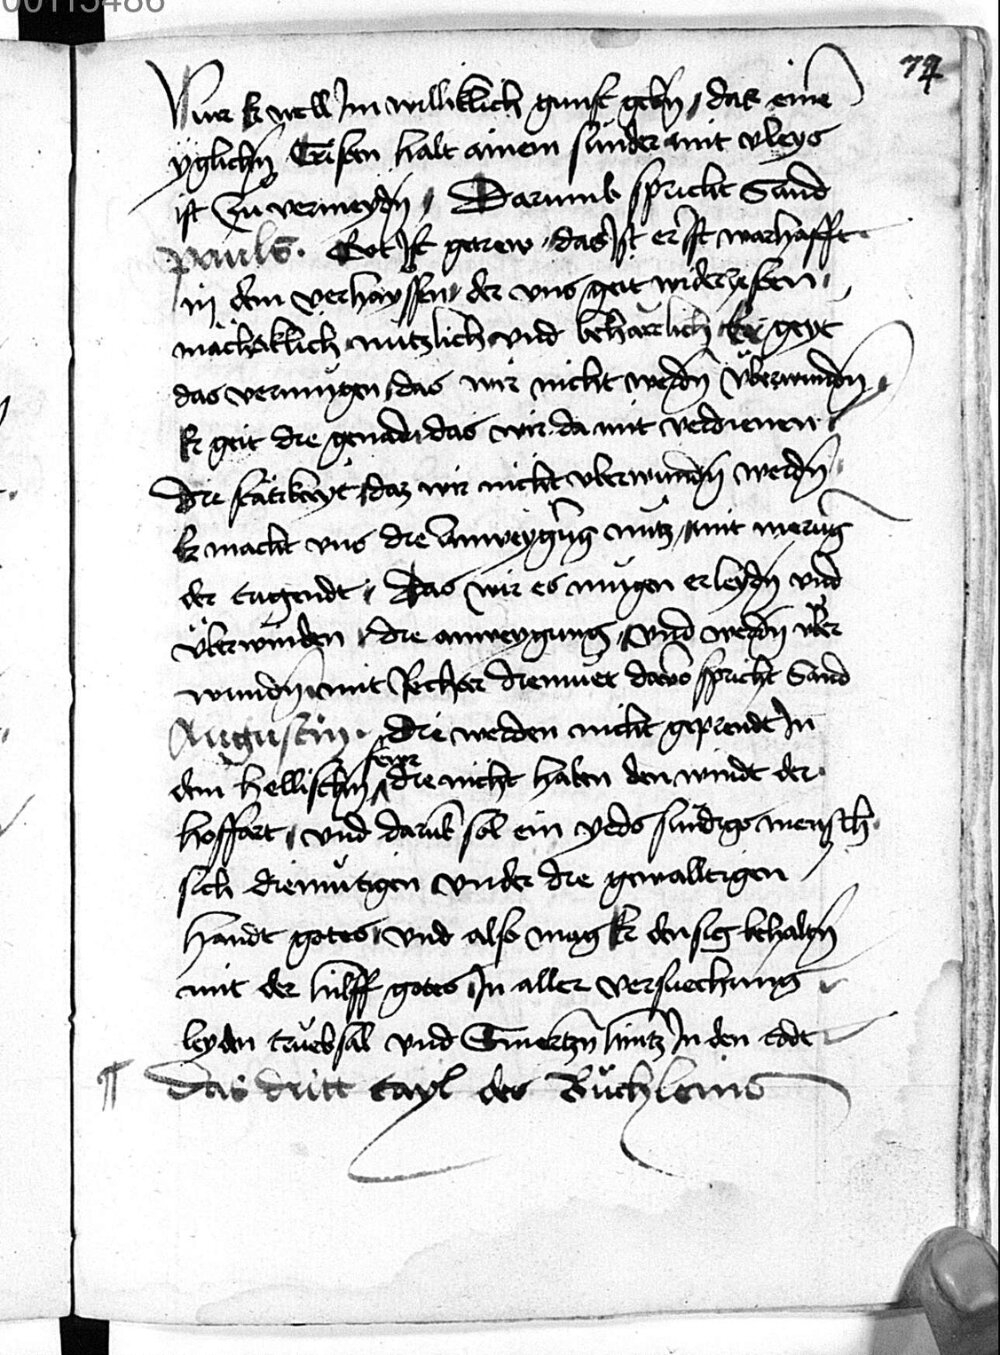 00115486
74
Nur Er well Im williklich gunst gebn, das eine
yglichn Cristen halt ainem sunder mit vleys
ist zu vermeydn, Darumb spricht Sand
Pauls. Got Ist getrew, das Ist er Ist warhafft
in dem verhayssen, der vns geit widerzesten,
mächtiklich nutzlich vnd beharrlich Er geyt
das vermugen, das wir nicht werdn vberwundn,
Er geit die genadn, das wir da mit verdienen.
die stätikayt, daz wir nicht vberwundn werdn,
Er macht vns die anweygung nutz, mit merung
der tugendt, Das wir es mugen erleydn vnd
vberwinden, die anweygung, vnd werdn vber
wundn, mit rechter diemuet dauo spricht Sand
Augustin. die werden nicht geprendt In
dem hellischn fewr die nicht haben den windt der
hoffart, vnd darub sol ein yeds sundigs mensch
sich diemutigen vnder die gewalltigen
handt gotes, vnd also mag Er den sig behaltn
mit der hilff gotes In aller versuechung
leyden truebsal vnd Smertzn hintz In den todt
¶ Das dritt tayl des Büchleins